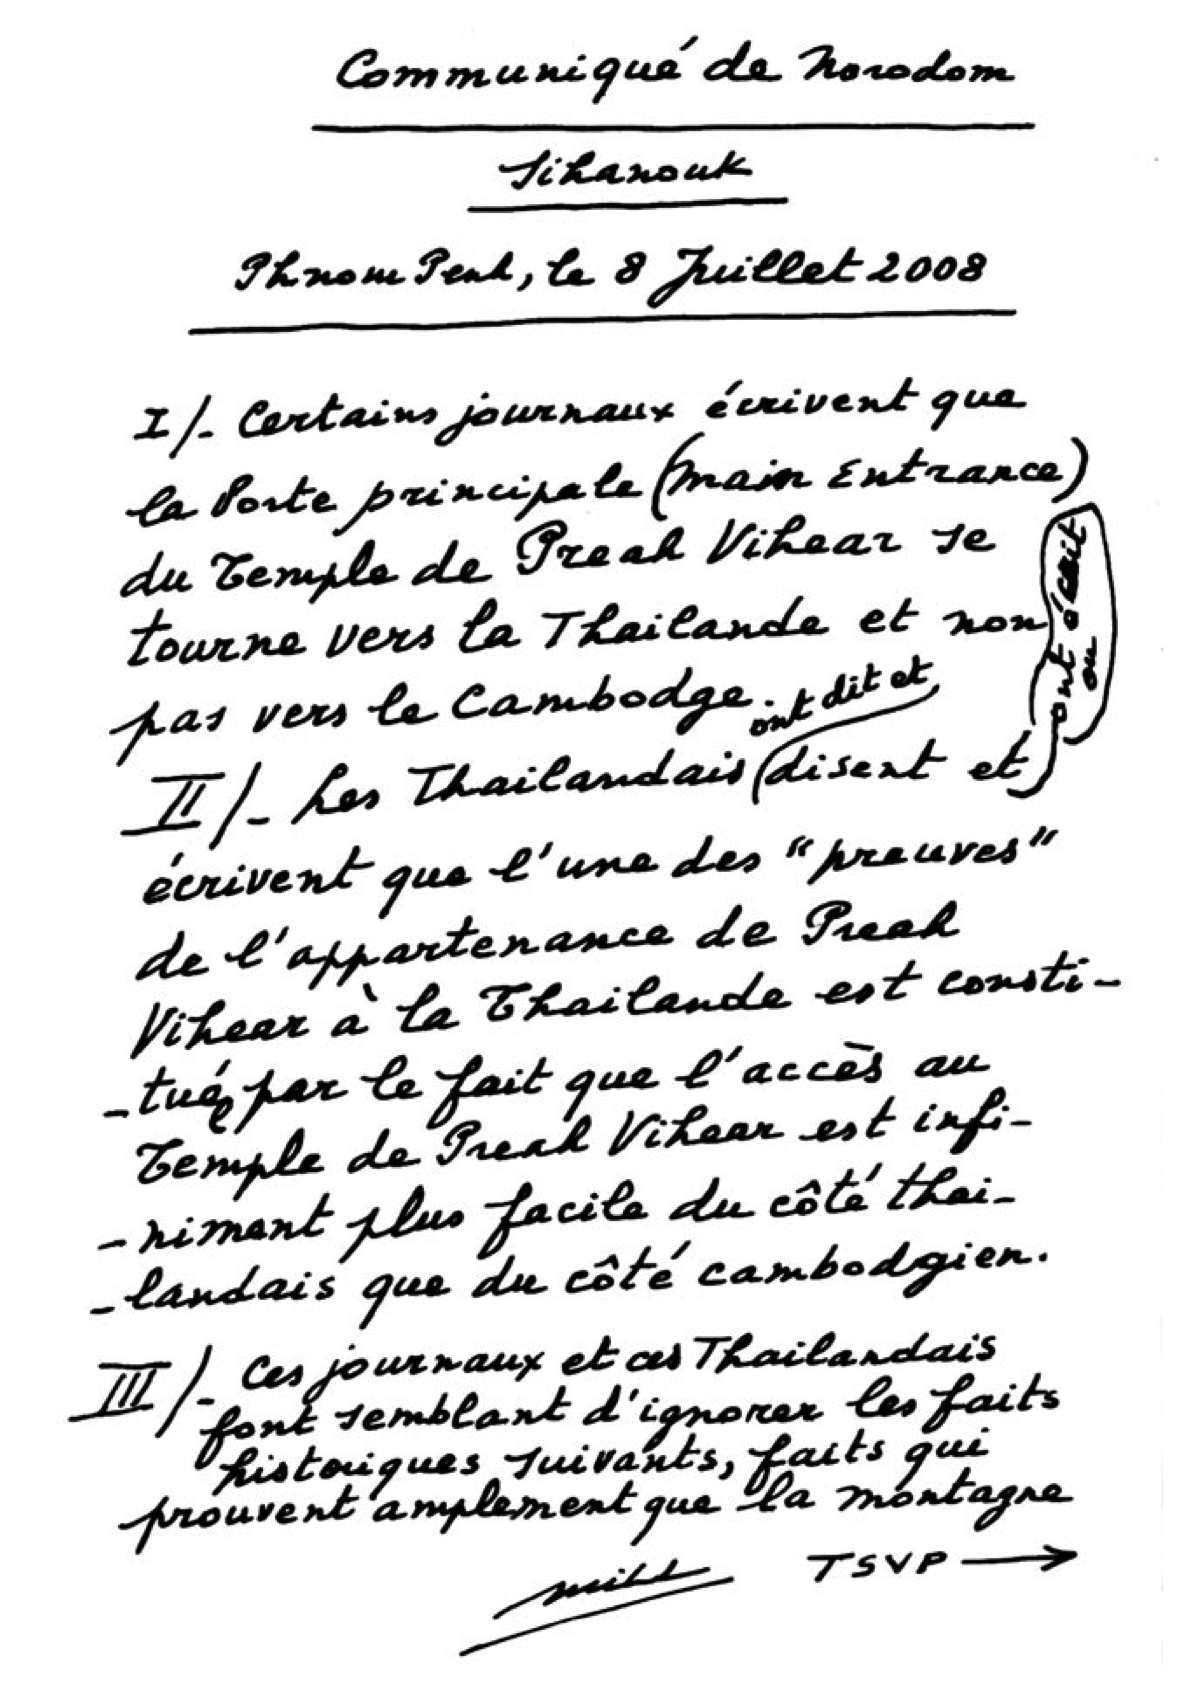 Communiqué de Norodom
Sihanouk
Phnom Penh, le 8 Juillet 2008
I/- Certains journaux écrivent que
la Porte principale (Main Entrance)
du Temple de Preah Vihear se
tourne vers la Thailande et non
pas vers le Cambodge.
ont dit et
II/- Les Thailandais (disent et)
ont écrit
ou
écrivent que l'une des "preuves"
de l'appartenance de Preah
Vihear à la Thailande est consti-
-tuée par le fait que l'accès au
Temple de Preah Vihear est infi-
-niment plus facile du côté thai-
-landais que du côté cambodgien.
III/- Ces journaux et ces Thailandais
font semblant d'ignorer les faits
historiques suivants, faits qui
prouvent amplement que la montagne
TSVP →